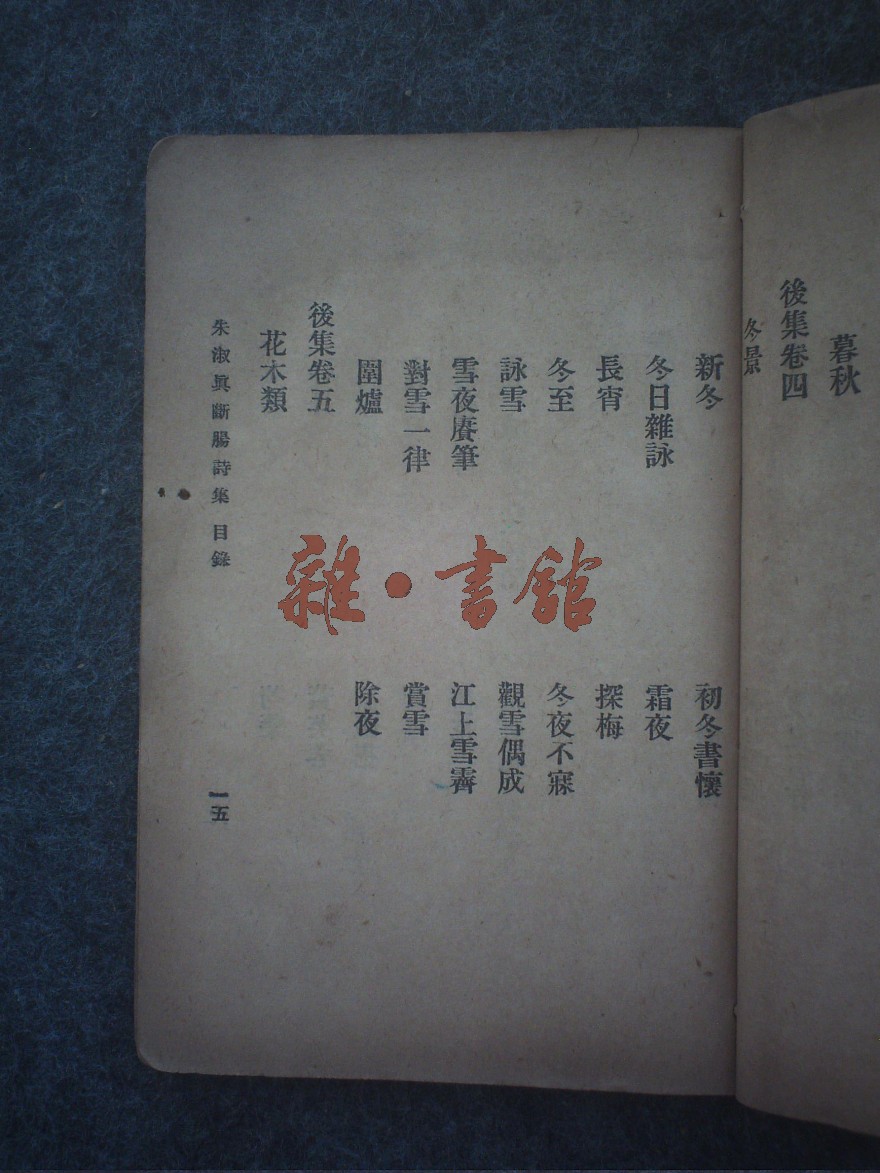 暮秋
後集卷四
冬景
新冬
初冬書懷
冬日雜詠
霜夜
長宵
探梅
冬至
冬夜不寐
詠雪
觀雪偶成
雪夜賡筆
江上雪霽
對雪一律
賞雪
圍爐
除夜
後集卷五
花木類
朱淑眞斷腸詩集 目錄
一五
雜·書館